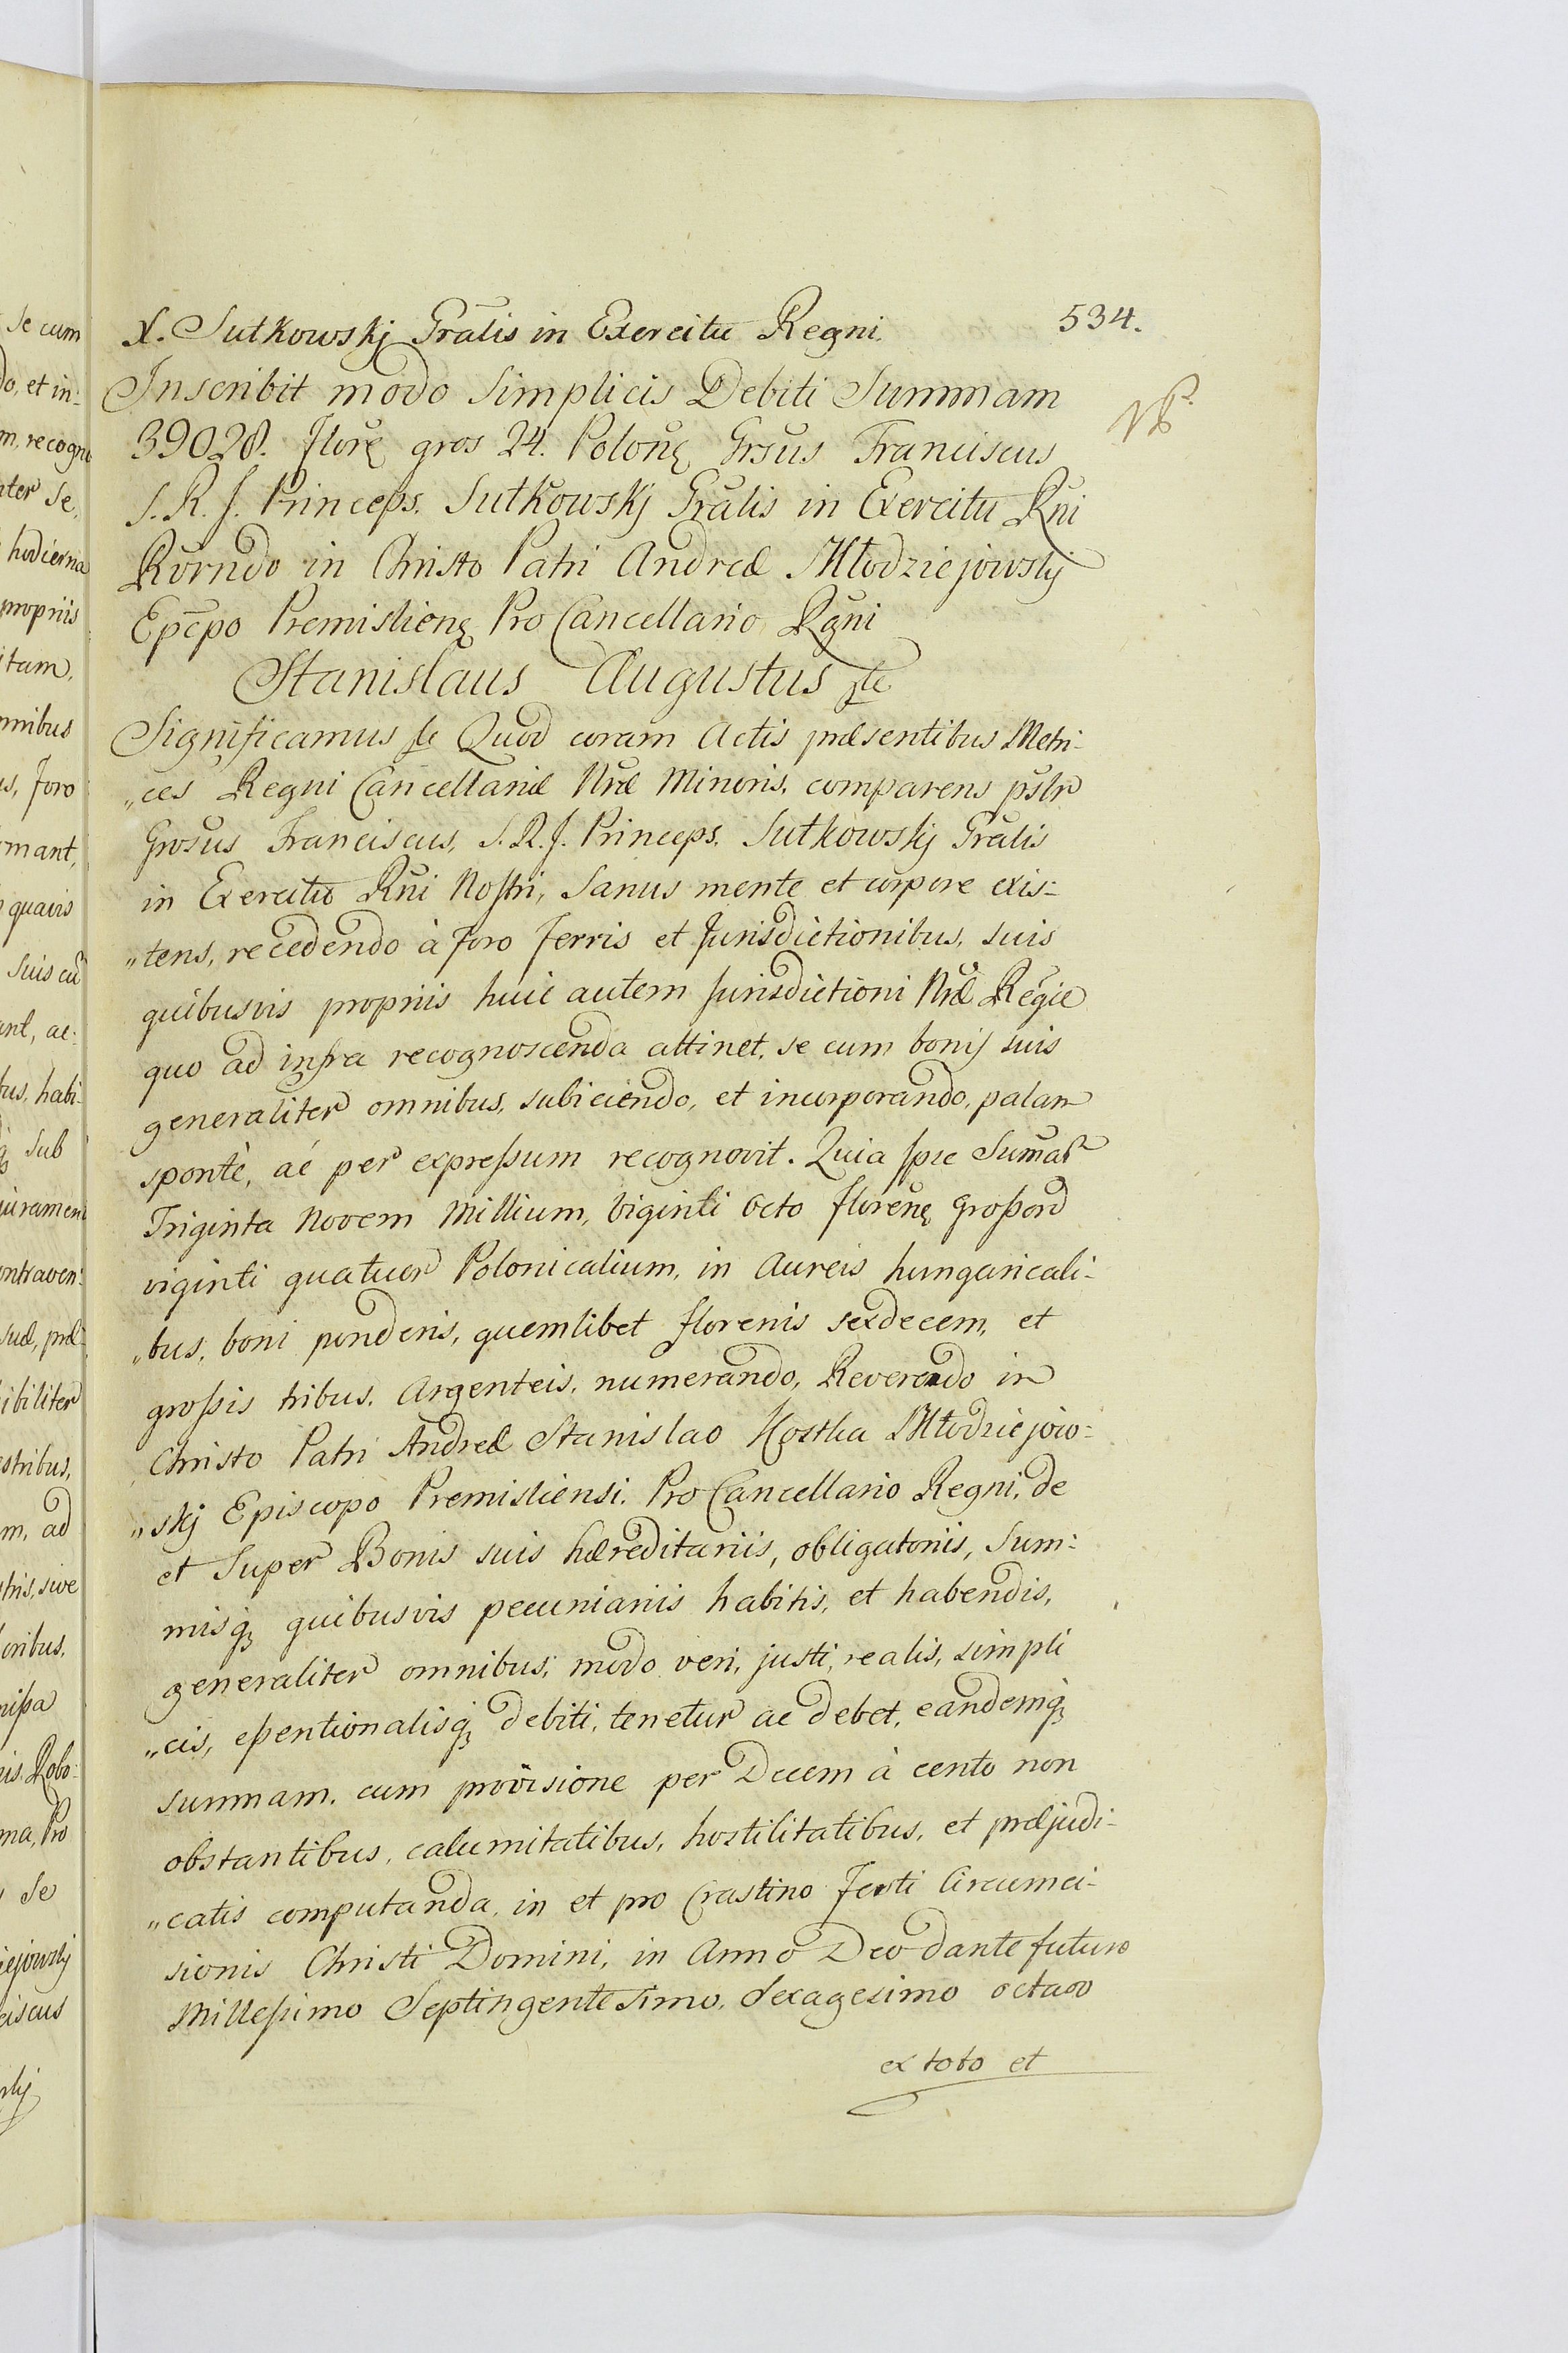 X. Sutkowskj Gralis in Exercitu Regni.
534.
Inscribit modo Simplicis Debiti Summam
39028. florę gros 24. Polonę Grsus Franciscus
S. R. J. Princeps. Sutkowskj Gralis in Exercitu Rni
Rvrndo in Christo Patri Andreæ Młodziejowskj
Epcpo Premislienę Pro Cancellario Rgni
Stanislaus Augustus
Significamus Quod coram Actis præsentibus Metri-
„ces Regni Cancellariæ Nræ Minoris, comparens pslr
Grosus Franciscus, S. R. J. Princeps. Sutkowskj Gralis
in Exercitu Rni Nostri, Sanus mente et corpore exis=
„tens, recedendo à foro Terris et Jurisdictionibus, suis
quibusvis propriis huic autem Jurisdictioni Nræ Regie
quo ad infra recognoscenda attinet, se cum bonij suis
generaliter omnibus, subiciendo, et incorporando, palam
spontè, aé per expressum recognovit. Quia Sumar
Triginta Novem Millium, Viginti Octo florenę Grossor
viginti quatuor Polonicalium, in Aureis hungaricali-
„bus, boni ponderis, quemlibet florenis sexdecem, et
grossis tribus. Argenteis, numerando, Reverendo in
Christo Patri Andreæ Stanislao Kostka Młodziejow=
„skj Episcopo Premisliensi. Pro Cancellario Regni, de
et Super Bonis suis hæreditariis, obligatoriis, Sum=
misq quibusvis pecuniariis habitis, et habendis,
generaliter omnibus, modo veri, justi, realis, simpli
„cis, essentionalisq debiti, tenetur ac debet, eandemq
summam, cum provisione per Decem à cento non
obstantibus, calumitatibus, hostilitatibus, et præjudi-
„catis computanda, in et pro Crastino Festi Circumci-
sionis Christi Domini, in Anno Deo dante futuro
Millesimo Septingentesimo, Sexagesimo octavo
ex toto et